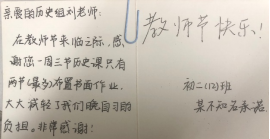 亲爱的历史组刘老师:
在教师节来临之际,感
谢您一周三节历史课只有
两节(最多)布置书面作业,
大大减轻了我们晚自习的
负担。非常感谢!
教师节快乐!
初二(12)班
某不知名承诺